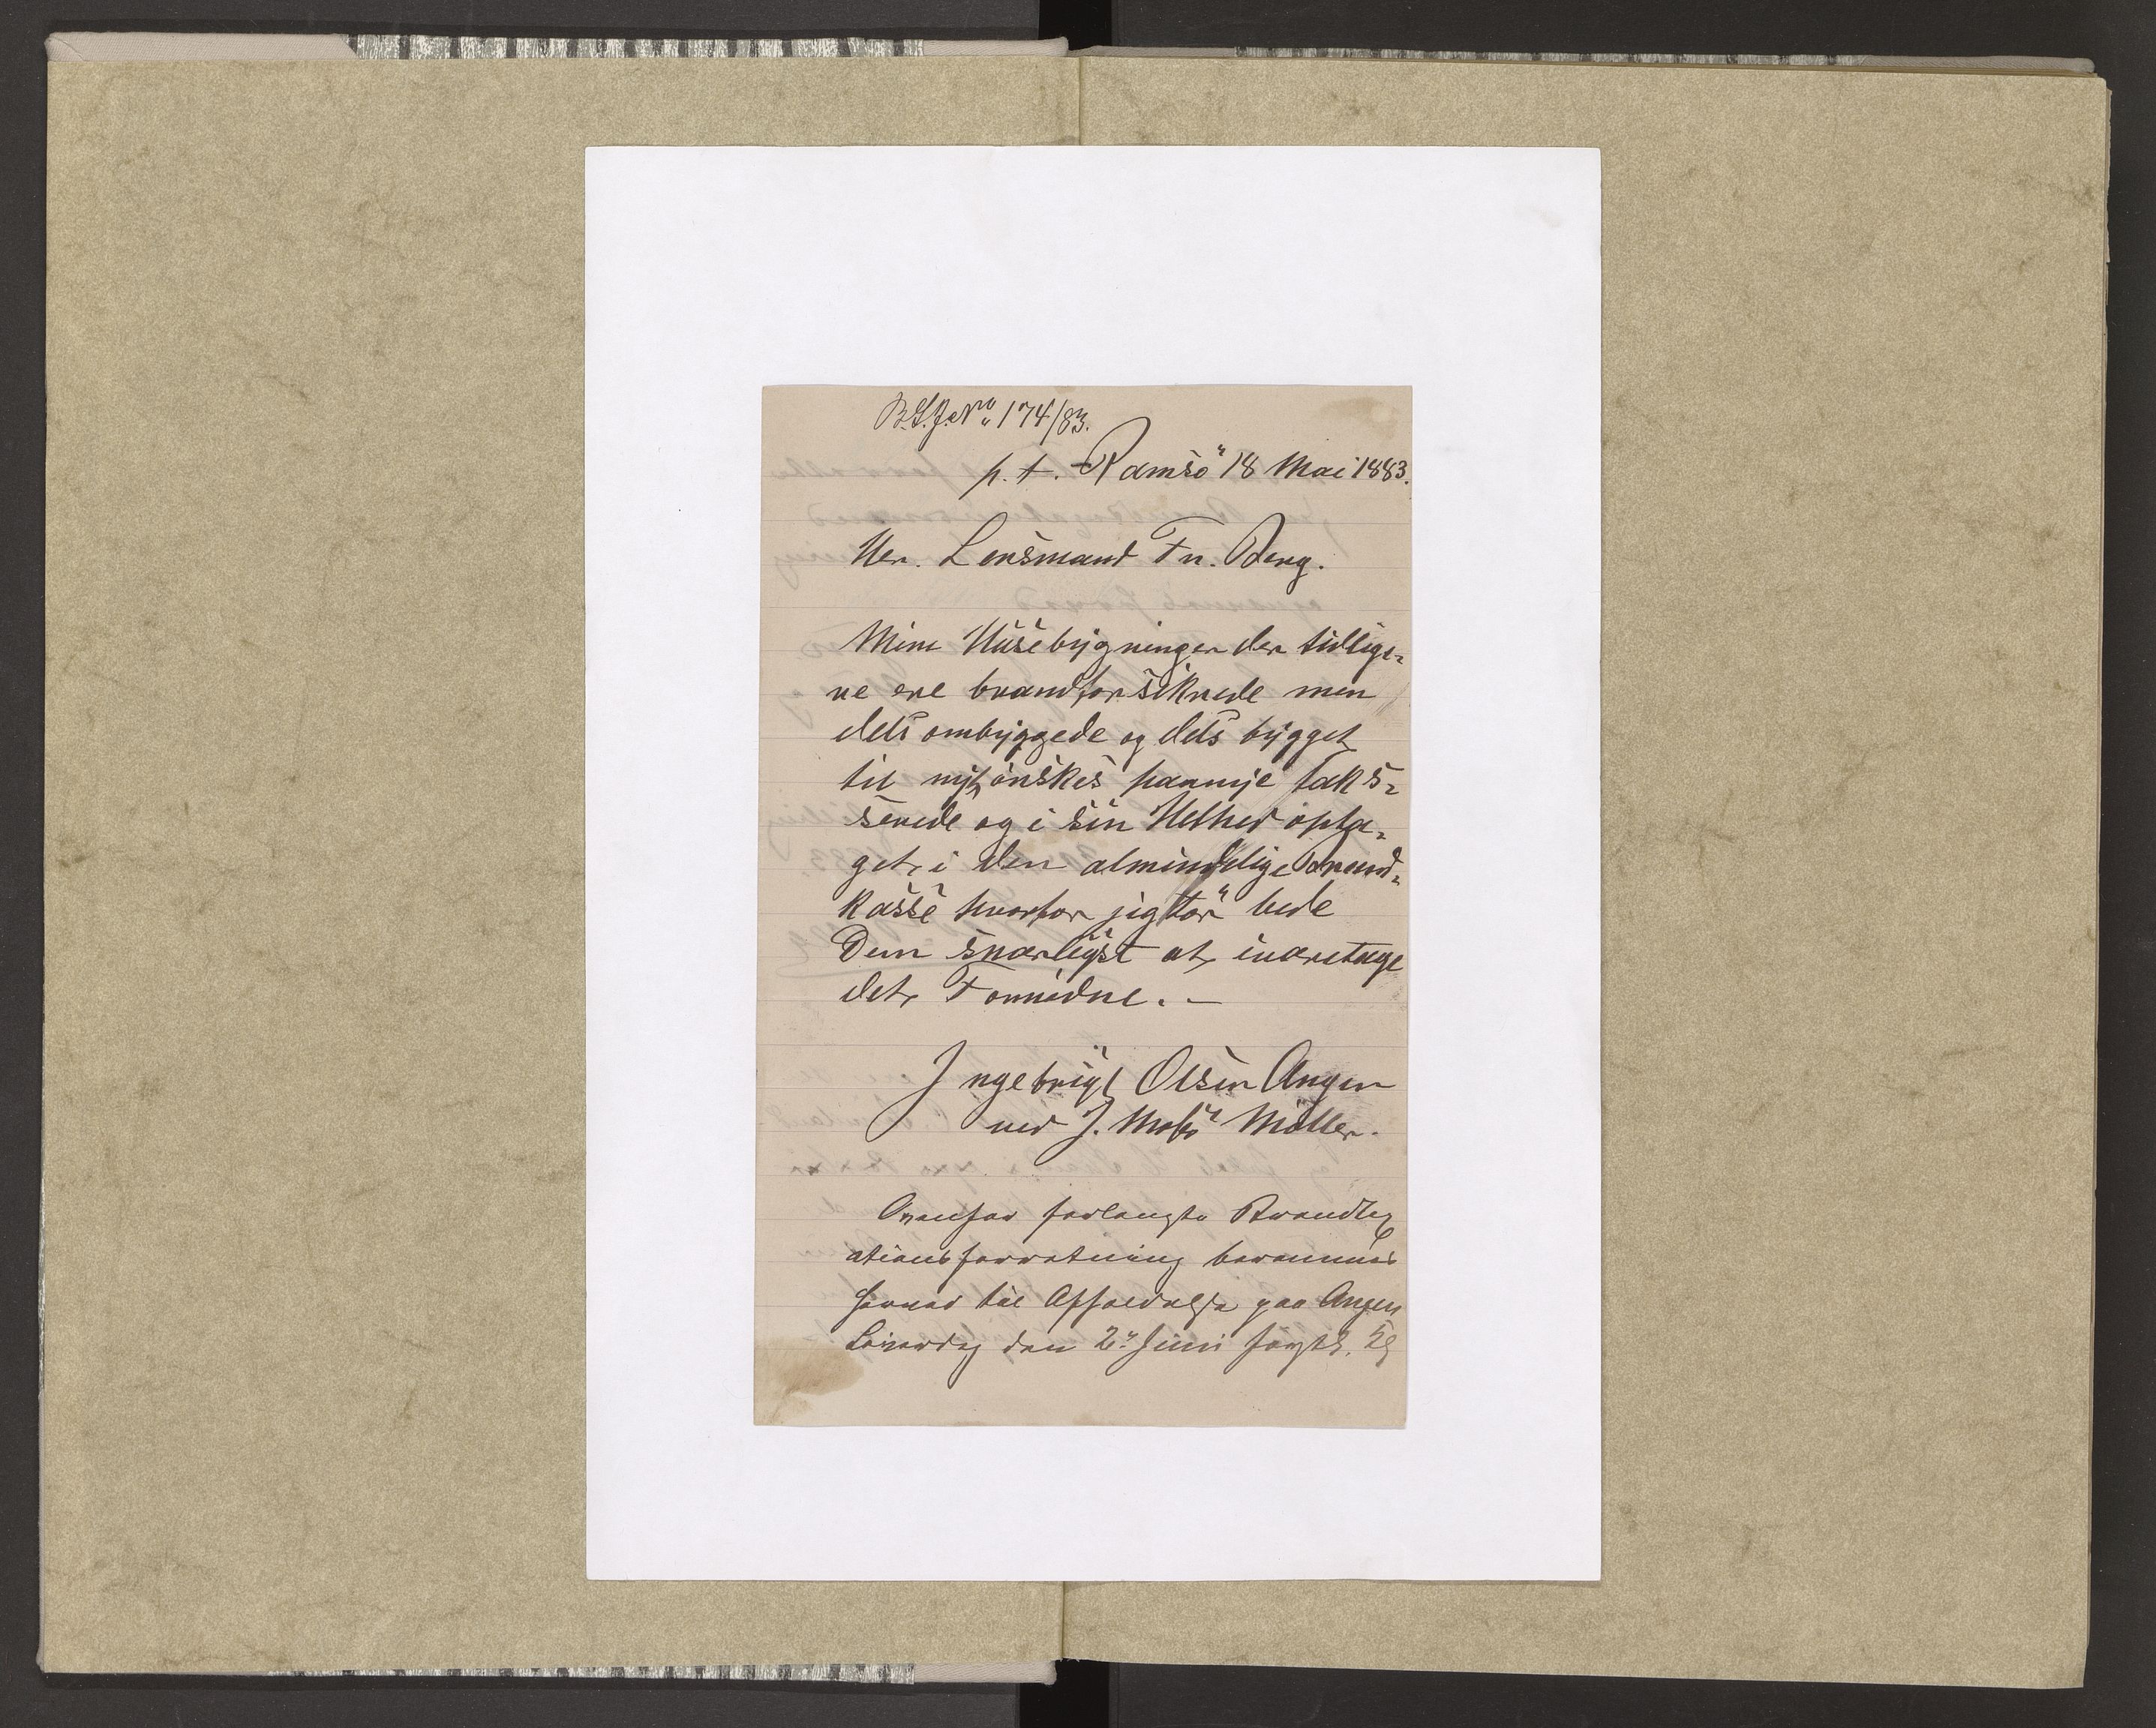 B.L.J.No 174/83.
p. t. Ramsö 18 Mai 1883.
Her. Lensmand Fr. Berg.
Mine Husebygninger der tidlige-
re ere brandforsikrede men
dels ombyggede og dels bygget
til nyt, önskes paanye taks-
serede og i sin Helhed opta-
get i den almindelige Brand-
kasse hvorfor jeg tör bede
Dem snarligst at ivaretage
det Fornödne. -
Ingebrigt Olsen Angen
ved J. Möller.
Ovenfor forlangte Brandtax
ationsforretning berammes
herved til Afholdelse paa Angen
Löverdag den 2den Juni förstk.